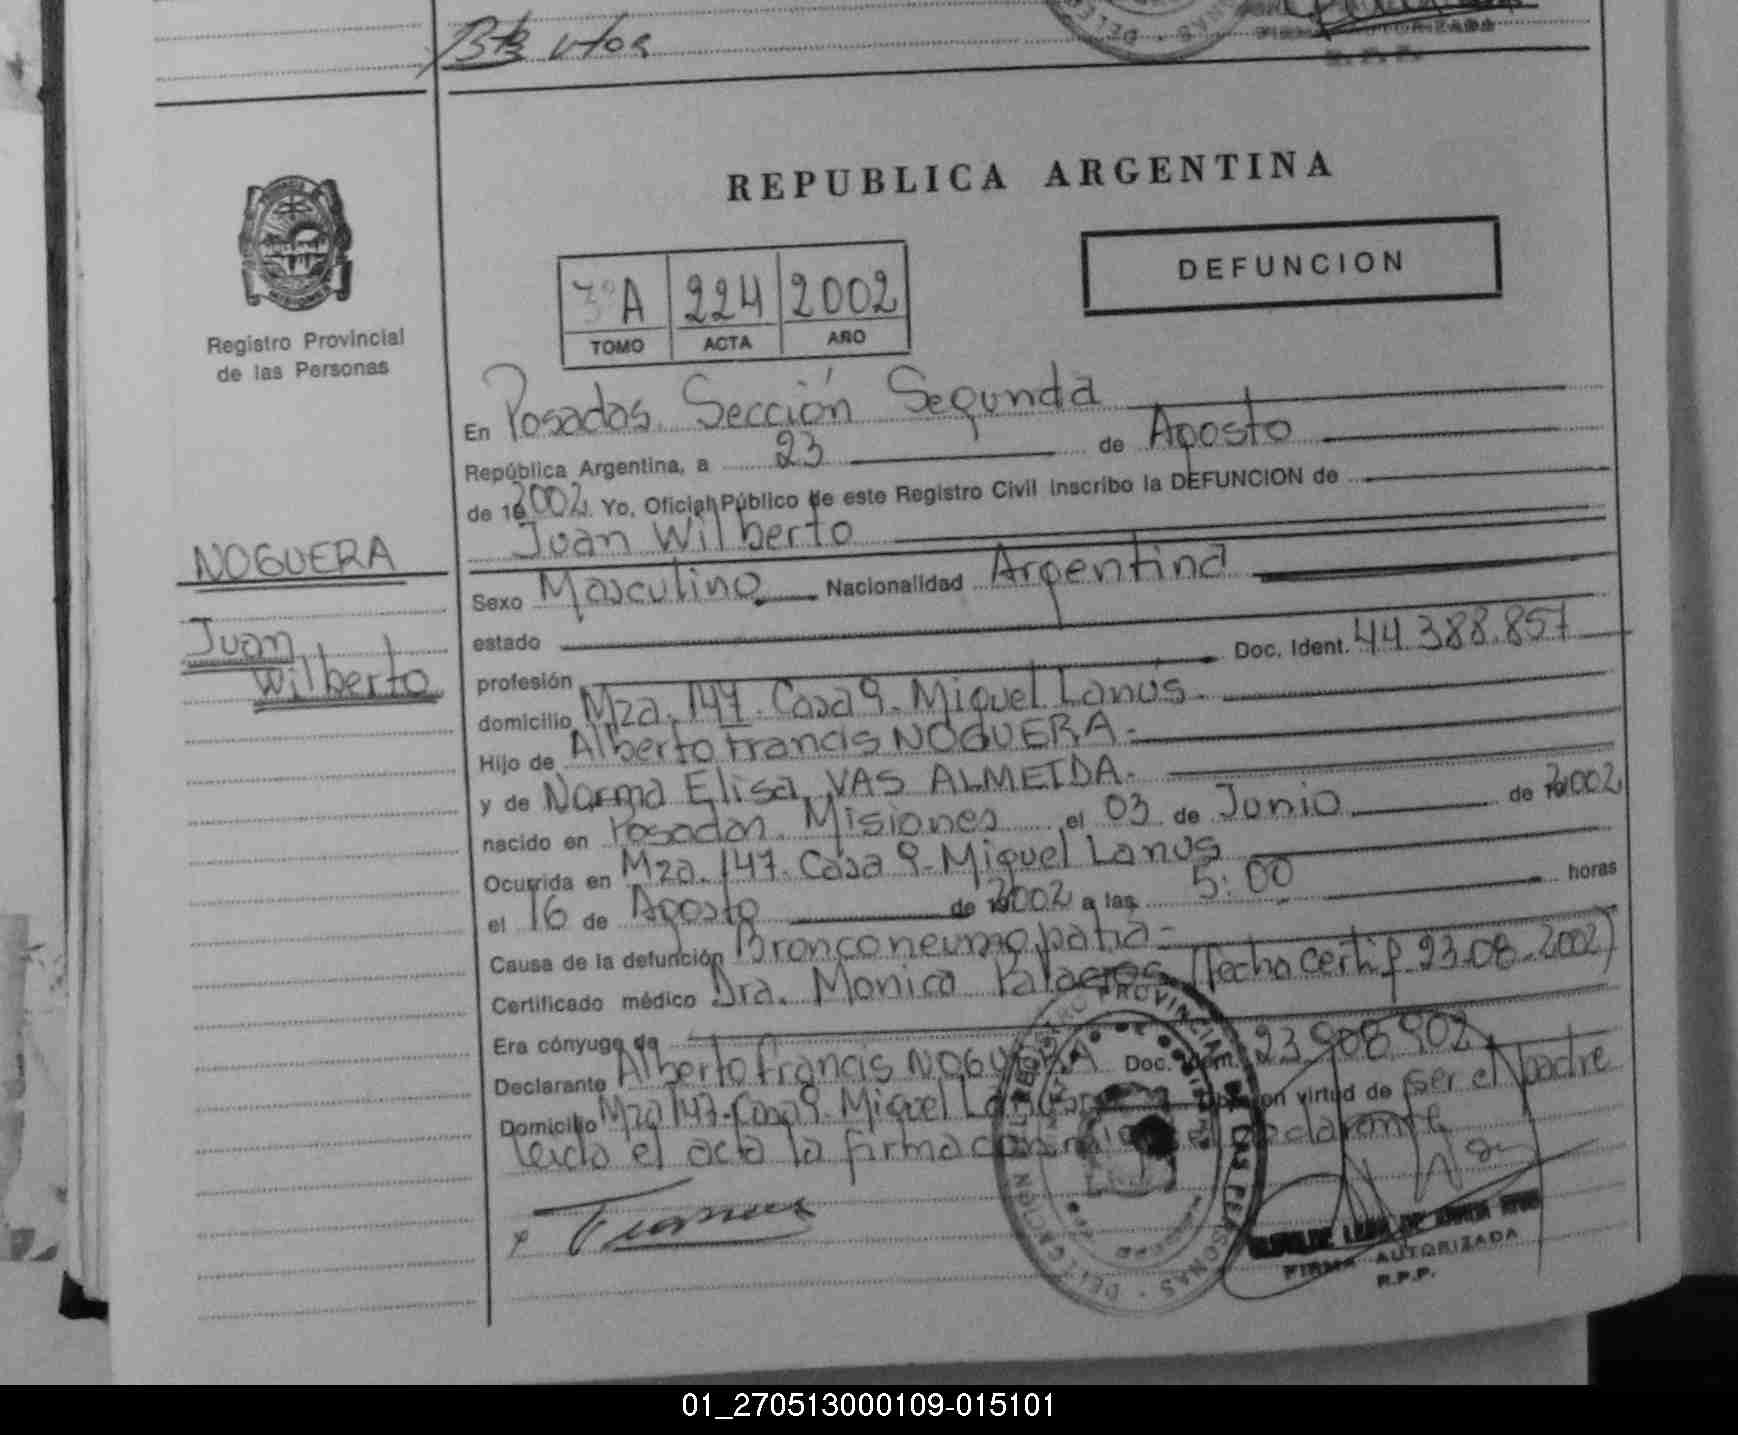 Bts vtos
FIRMA AUTORIZADA
R.P.P.
REPUBLICA ARGENTINA
DEFUNCION
3º A 224 2002
TOMO ACTA AÑO
Registro Provincial
de las Personas
En Posadas. Sección Segunda
República Argentina, a 23 de Agosto
de 2002. Yo, Oficial Público de este Registro Civil inscribo la DEFUNCION de
Juan Wilberto
NOGUERA
Juan
Wilberto
Sexo Masculino Nacionalidad Argentina
estado Doc. Ident. 44.388.857
profesión
domicilio Mza. 147. Casa 9. Miguel Lanús.
Hijo de Alberto Francis NOGUERA.-
y de Norma Elisa VAS ALMEIDA.
nacido en Posadas. Misiones el 03 de Junio de 2002
Ocurrida en Mza. 147. Casa 9. Miguel Lanús
el 16 de Agosto de 2002 a las 5:00 horas
Causa de la defunción Bronconeumopatía-
Certificado médico Dra. Monica Palacios (fecha certif 23.08.2002)
Era cónyuge de
Declarante Alberto Francis NOGUERA Doc. Ident. 23.908.902
Domicilio Mza 147. Casa 9. Miguel Lanús en virtud de ser el padre
leída el acta la firma conmigo el declarante
FIRMA AUTORIZADA
R.P.P.
01_270513000109-015101